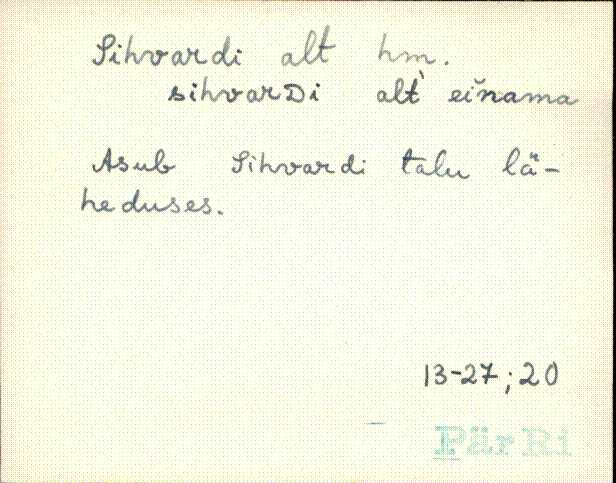 Sihvardi alt hm.
sihvarDi alt̀ eińama
Asub Sihvardi talu lä-
heduses.
13-27; 20
Pär Ri